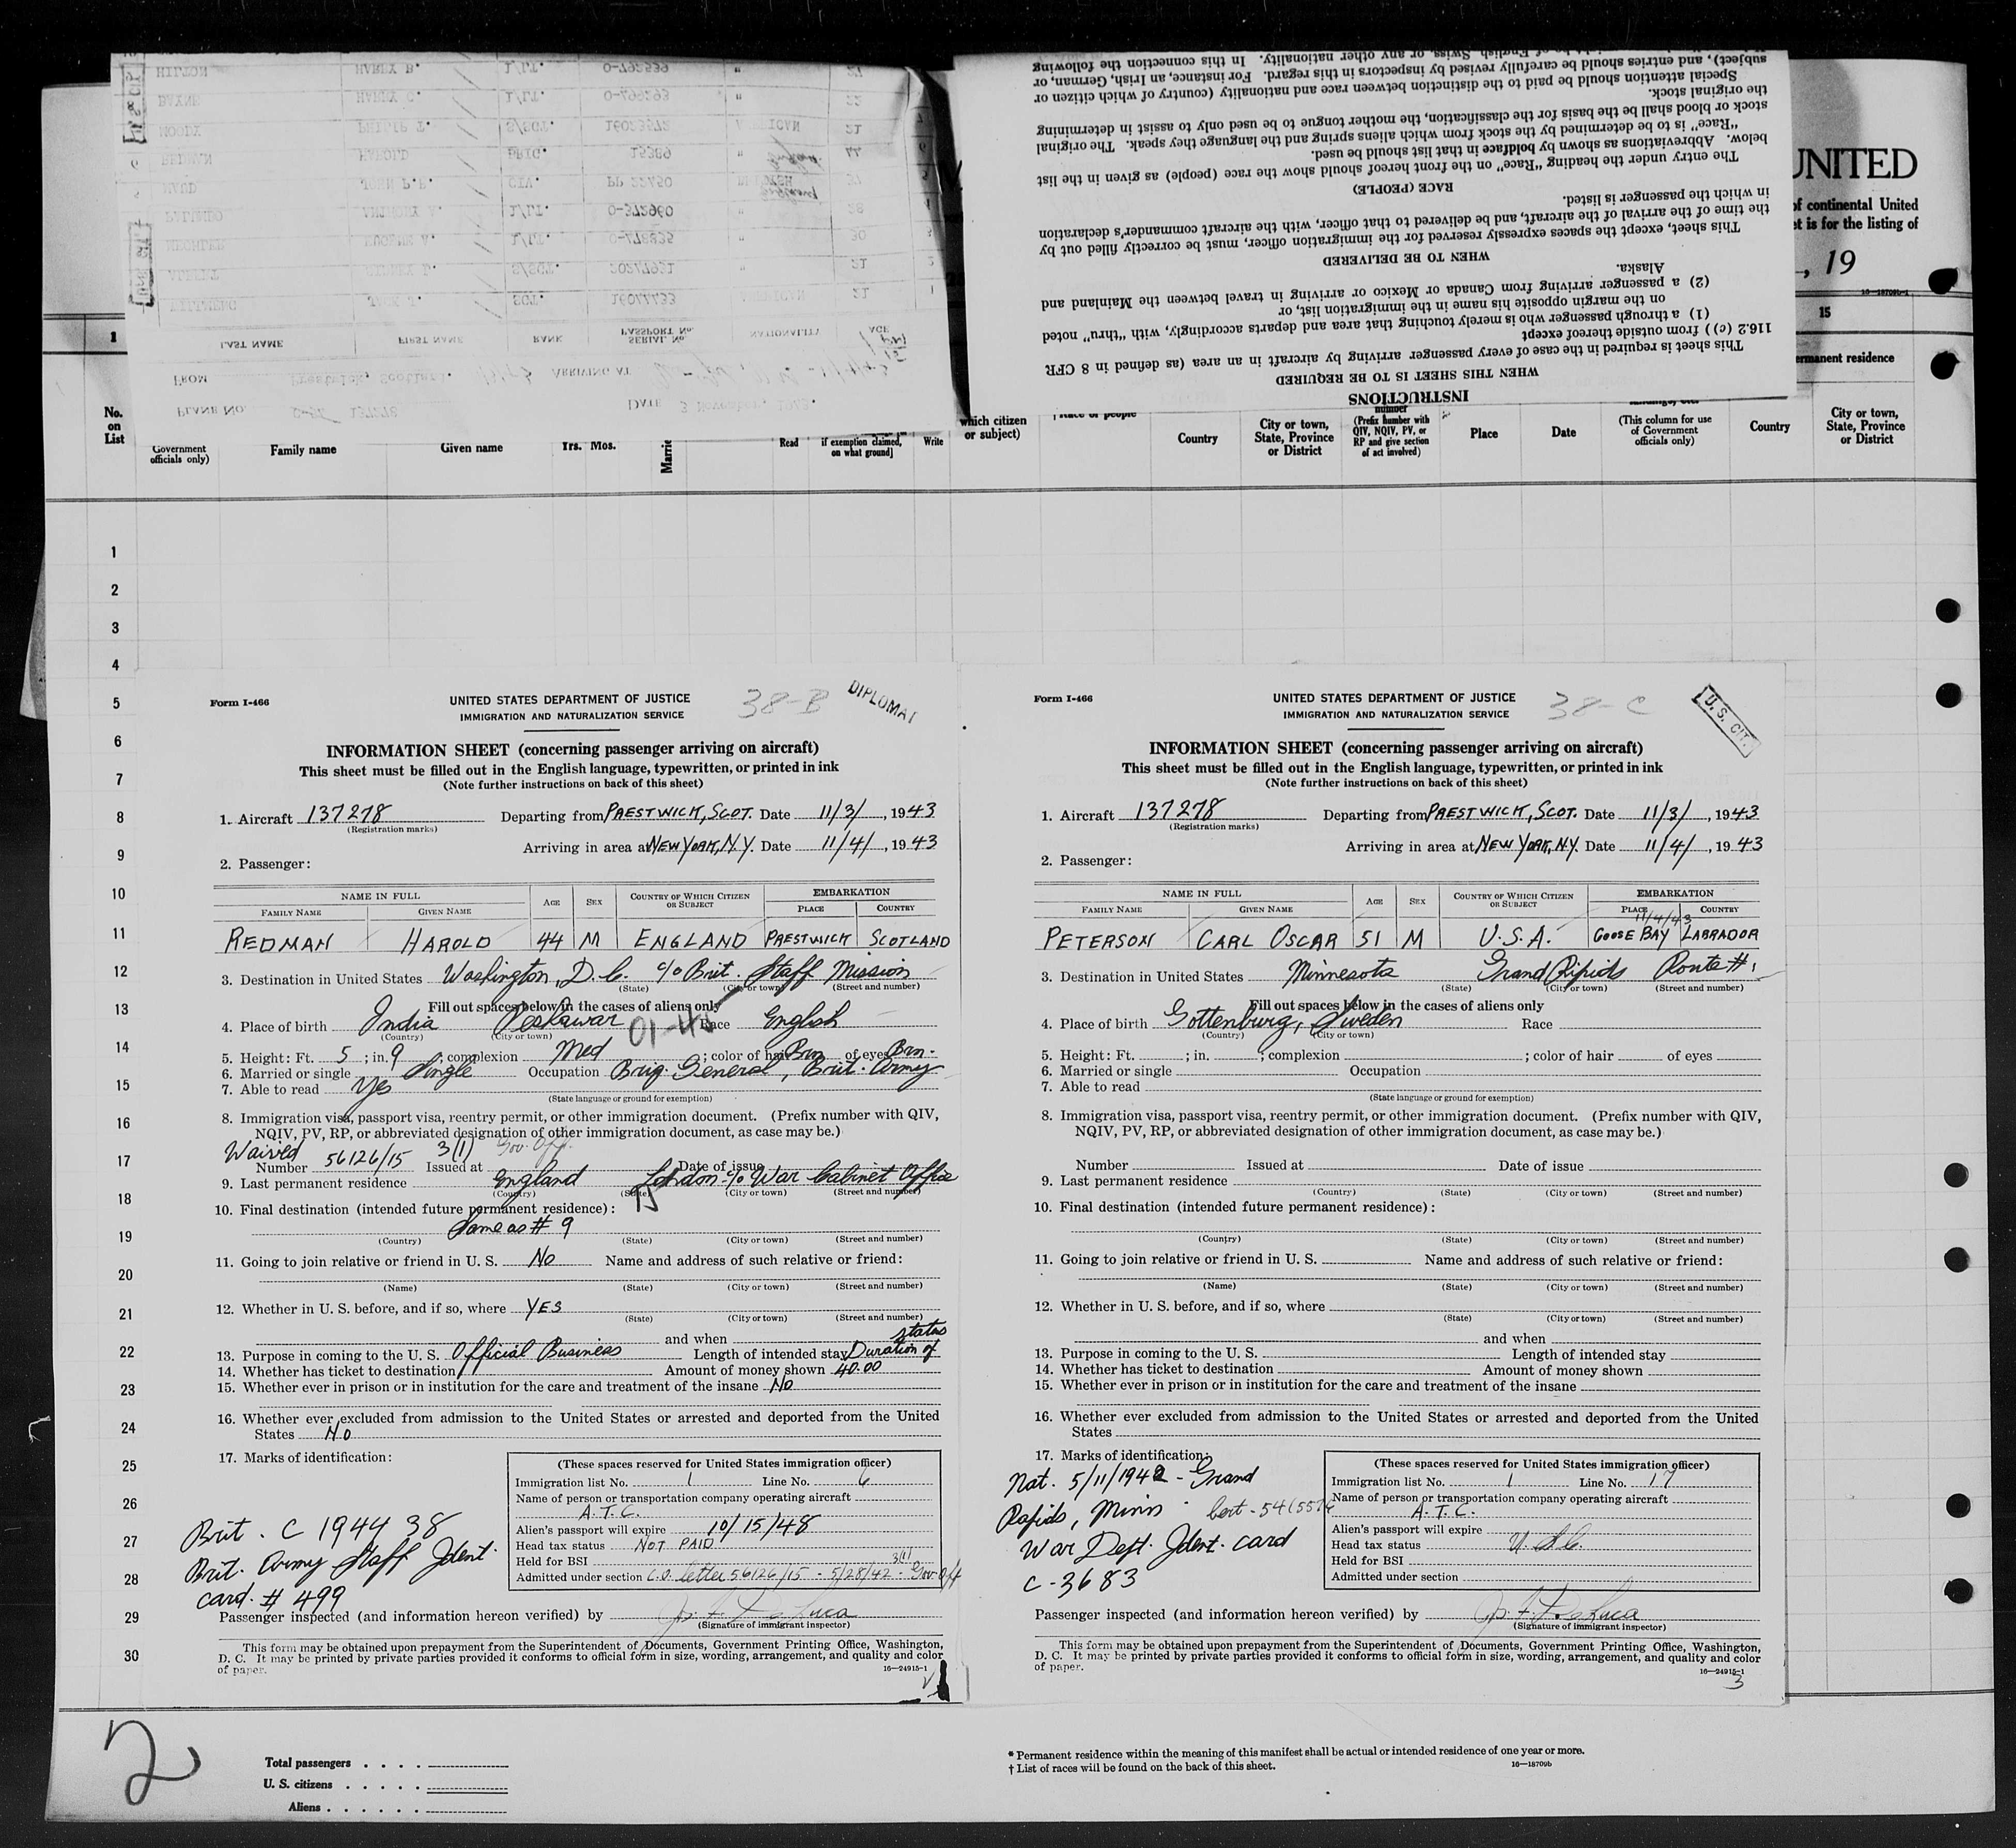 HILTON HARRY B. 1/LT. 0-792539 " 27
BAYNE HARRY C. 1/LT. 0-799293 " 22
MOODY PHILIP T. S/SGT. 21
HAROLD BRIG. 15389 " 44
JOHN P.R. CIV. PP 22450 37
ANTHONY 1/LT. 0-372960 " 28
EUGENE V. 1/LT. " 30
S/SGT. 20277921 " 21
JACK T. SGT. 16077733 21
LAST NAME FIRST NAME RANK PASSPORT No. SERIAL No. NATIONALITY AGE
FROM Prestwick, Scotland. ARRIVING AT
PLANE NO. DATE 3 November, 1943.
subject), and entries should be carefully revised by inspectors in this regard. For instance, an Irish, German, or
Special attention should be paid to the distinction between race and nationality (country of which citizen or
the original stock.
stock or blood shall be the basis for the classification, the mother tongue to be used only to assist in determining
"Race" is to be determined by the stock from which aliens spring and the language they speak. The original
below. Abbreviations as shown by boldface in that list should be used.
The entry under the heading "Race" on the front hereof should show the race (people) as given in the list
RACE (PEOPLE)
in which the passenger is listed.
the time of the arrival of the aircraft, and be delivered to that officer, with the aircraft commander's declaration
This sheet, except the spaces expressly reserved for the immigration officer, must be correctly filled out by
WHEN TO BE DELIVERED
Alaska.
(2) a passenger arriving from Canada or Mexico or arriving in travel between the Mainland and
on the margin opposite his name in the immigration list, or
(1) a through passenger who is merely touching that area and departs accordingly, with "thru" noted
116.2 (c)) from outside thereof except
This sheet is required in the case of every passenger arriving by aircraft in an area (as defined in 8 CFR
WHEN THIS SHEET IS TO BE REQUIRED
INSTRUCTIONS
UNITED
of continental United
et is for the listing of
, 19
16—18709b-1
1 15
rmanent residence
No. on List
Government officials only)
Family name
Given name
Yrs. Mos.
Marrie
Read
if exemption claimed, on what ground]
Write
which citizen or subject)
Race or people
Country
City or town, State, Province or District
number (Prefix number with QIV, NQIV, PV, or RP and give section of act involved)
Place
Date
(This column for use of Government officials only)
Country
City or town, State, Province or District
1
2
3
4
5
6
7
8
9
10
11
12
13
14
15
16
17
18
19
20
21
22
23
24
25
26
27
28
29
30
Form I-466
UNITED STATES DEPARTMENT OF JUSTICE 38-B DIPLOMAT
IMMIGRATION AND NATURALIZATION SERVICE
INFORMATION SHEET (concerning passenger arriving on aircraft)
This sheet must be filled out in the English language, typewritten, or printed in ink
(Note further instructions on back of this sheet)
1. Aircraft 137278 Departing from PRESTWICK, SCOT. Date 11/3/, 1943
(Registration marks)
Arriving in area at NEW YORK, N.Y. Date 11/4/, 1943
2. Passenger:
NAME IN FULL AGE SEX COUNTRY OF WHICH CITIZEN OR SUBJECT EMBARKATION
FAMILY NAME GIVEN NAME PLACE COUNTRY
REDMAN HAROLD 44 M ENGLAND PRESTWICK SCOTLAND
3. Destination in United States Washington, D.C. c/o Brit. Staff Mission
(State) (City or town) (Street and number)
Fill out spaces below in the cases of aliens only
4. Place of birth India Peshawar 01-45 Race English
(Country) (City or town)
5. Height: Ft. 5 ; in. 9 ; complexion Med ; color of hair Brn of eyes Brn.
6. Married or single Single Occupation Brig. General, Brit. Army
7. Able to read Yes
(State language or ground for exemption)
8. Immigration visa, passport visa, reentry permit, or other immigration document. (Prefix number with QIV,
NQIV, PV, RP, or abbreviated designation of other immigration document, as case may be.)
Waived 3(1) Gov. Off.
Number 56126/15 Issued at Date of issue
9. Last permanent residence England London c/o War Cabinet Office
(Country) (State) (City or town) (Street and number)
10. Final destination (intended future permanent residence):
Same as # 9
(Country) (State) (City or town) (Street and number)
11. Going to join relative or friend in U. S. No Name and address of such relative or friend:
(Name) (State) (City or town) (Street and number)
12. Whether in U. S. before, and if so, where YES
(State) (City or town) (Street and number)
and when status
13. Purpose in coming to the U. S. Official Business Length of intended stay Duration of
14. Whether has ticket to destination Amount of money shown 40.00
15. Whether ever in prison or in institution for the care and treatment of the insane No
16. Whether ever excluded from admission to the United States or arrested and deported from the United
States No
17. Marks of identification:
Brit. C 1944 38
Brit. Army Staff Ident.
card. # 499
(These spaces reserved for United States immigration officer)
Immigration list No. 1 Line No. 6
Name of person or transportation company operating aircraft
A.T.C.
Alien's passport will expire 10/15/48
Head tax status NOT PAID
Held for BSI
Admitted under section C.O. letter 56126/15 - 5/28/42 - 3(1) Gov. Off
Passenger inspected (and information hereon verified) by
(Signature of immigrant inspector)
This form may be obtained upon prepayment from the Superintendent of Documents, Government Printing Office, Washington,
D. C. It may be printed by private parties provided it conforms to official form in size, wording, arrangement, and quality and color
of paper. 16—24915-1
Form I-466
UNITED STATES DEPARTMENT OF JUSTICE 38-C U.S. CIT.
IMMIGRATION AND NATURALIZATION SERVICE
INFORMATION SHEET (concerning passenger arriving on aircraft)
This sheet must be filled out in the English language, typewritten, or printed in ink
(Note further instructions on back of this sheet)
1. Aircraft 137278 Departing from PRESTWICK, SCOT. Date 11/3/, 1943
(Registration marks)
Arriving in area at NEW YORK, N.Y. Date 11/4/, 1943
2. Passenger:
NAME IN FULL AGE SEX COUNTRY OF WHICH CITIZEN OR SUBJECT EMBARKATION
FAMILY NAME GIVEN NAME PLACE COUNTRY
11/4/43
PETERSON CARL OSCAR 51 M U.S.A. GOOSE BAY LABRADOR
3. Destination in United States Minnesota Grand Ripids Route #1
(State) (City or town) (Street and number)
Fill out spaces below in the cases of aliens only
4. Place of birth Gottenburg, Sweden Race
(Country) (City or town)
5. Height: Ft. ; in. ; complexion ; color of hair of eyes
6. Married or single Occupation
7. Able to read
(State language or ground for exemption)
8. Immigration visa, passport visa, reentry permit, or other immigration document. (Prefix number with QIV,
NQIV, PV, RP, or abbreviated designation of other immigration document, as case may be.)
Number Issued at Date of issue
9. Last permanent residence
(Country) (State) (City or town) (Street and number)
10. Final destination (intended future permanent residence):
(Country) (State) (City or town) (Street and number)
11. Going to join relative or friend in U. S. Name and address of such relative or friend:
(Name) (State) (City or town) (Street and number)
12. Whether in U. S. before, and if so, where
(State) (City or town) (Street and number)
and when
13. Purpose in coming to the U. S. Length of intended stay
14. Whether has ticket to destination Amount of money shown
15. Whether ever in prison or in institution for the care and treatment of the insane
16. Whether ever excluded from admission to the United States or arrested and deported from the United
States
17. Marks of identification:
Nat. 5/11/1942 - Grand
Rapids, Minn
War Dept. Ident. card
C-3683
(These spaces reserved for United States immigration officer)
Immigration list No. 1 Line No. 17
Name of person or transportation company operating aircraft
A.T.C.
Alien's passport will expire
Head tax status U.S.C.
Held for BSI
Admitted under section
Passenger inspected (and information hereon verified) by
(Signature of immigrant inspector)
This form may be obtained upon prepayment from the Superintendent of Documents, Government Printing Office, Washington,
D. C. It may be printed by private parties provided it conforms to official form in size, wording, arrangement, and quality and color
of paper. 16—24915-1
3
2
Total passengers . . . .
U. S. citizens . . . . .
Aliens . . . . . .
* Permanent residence within the meaning of this manifest shall be actual or intended residence of one year or more.
† List of races will be found on the back of this sheet. 16—18709b